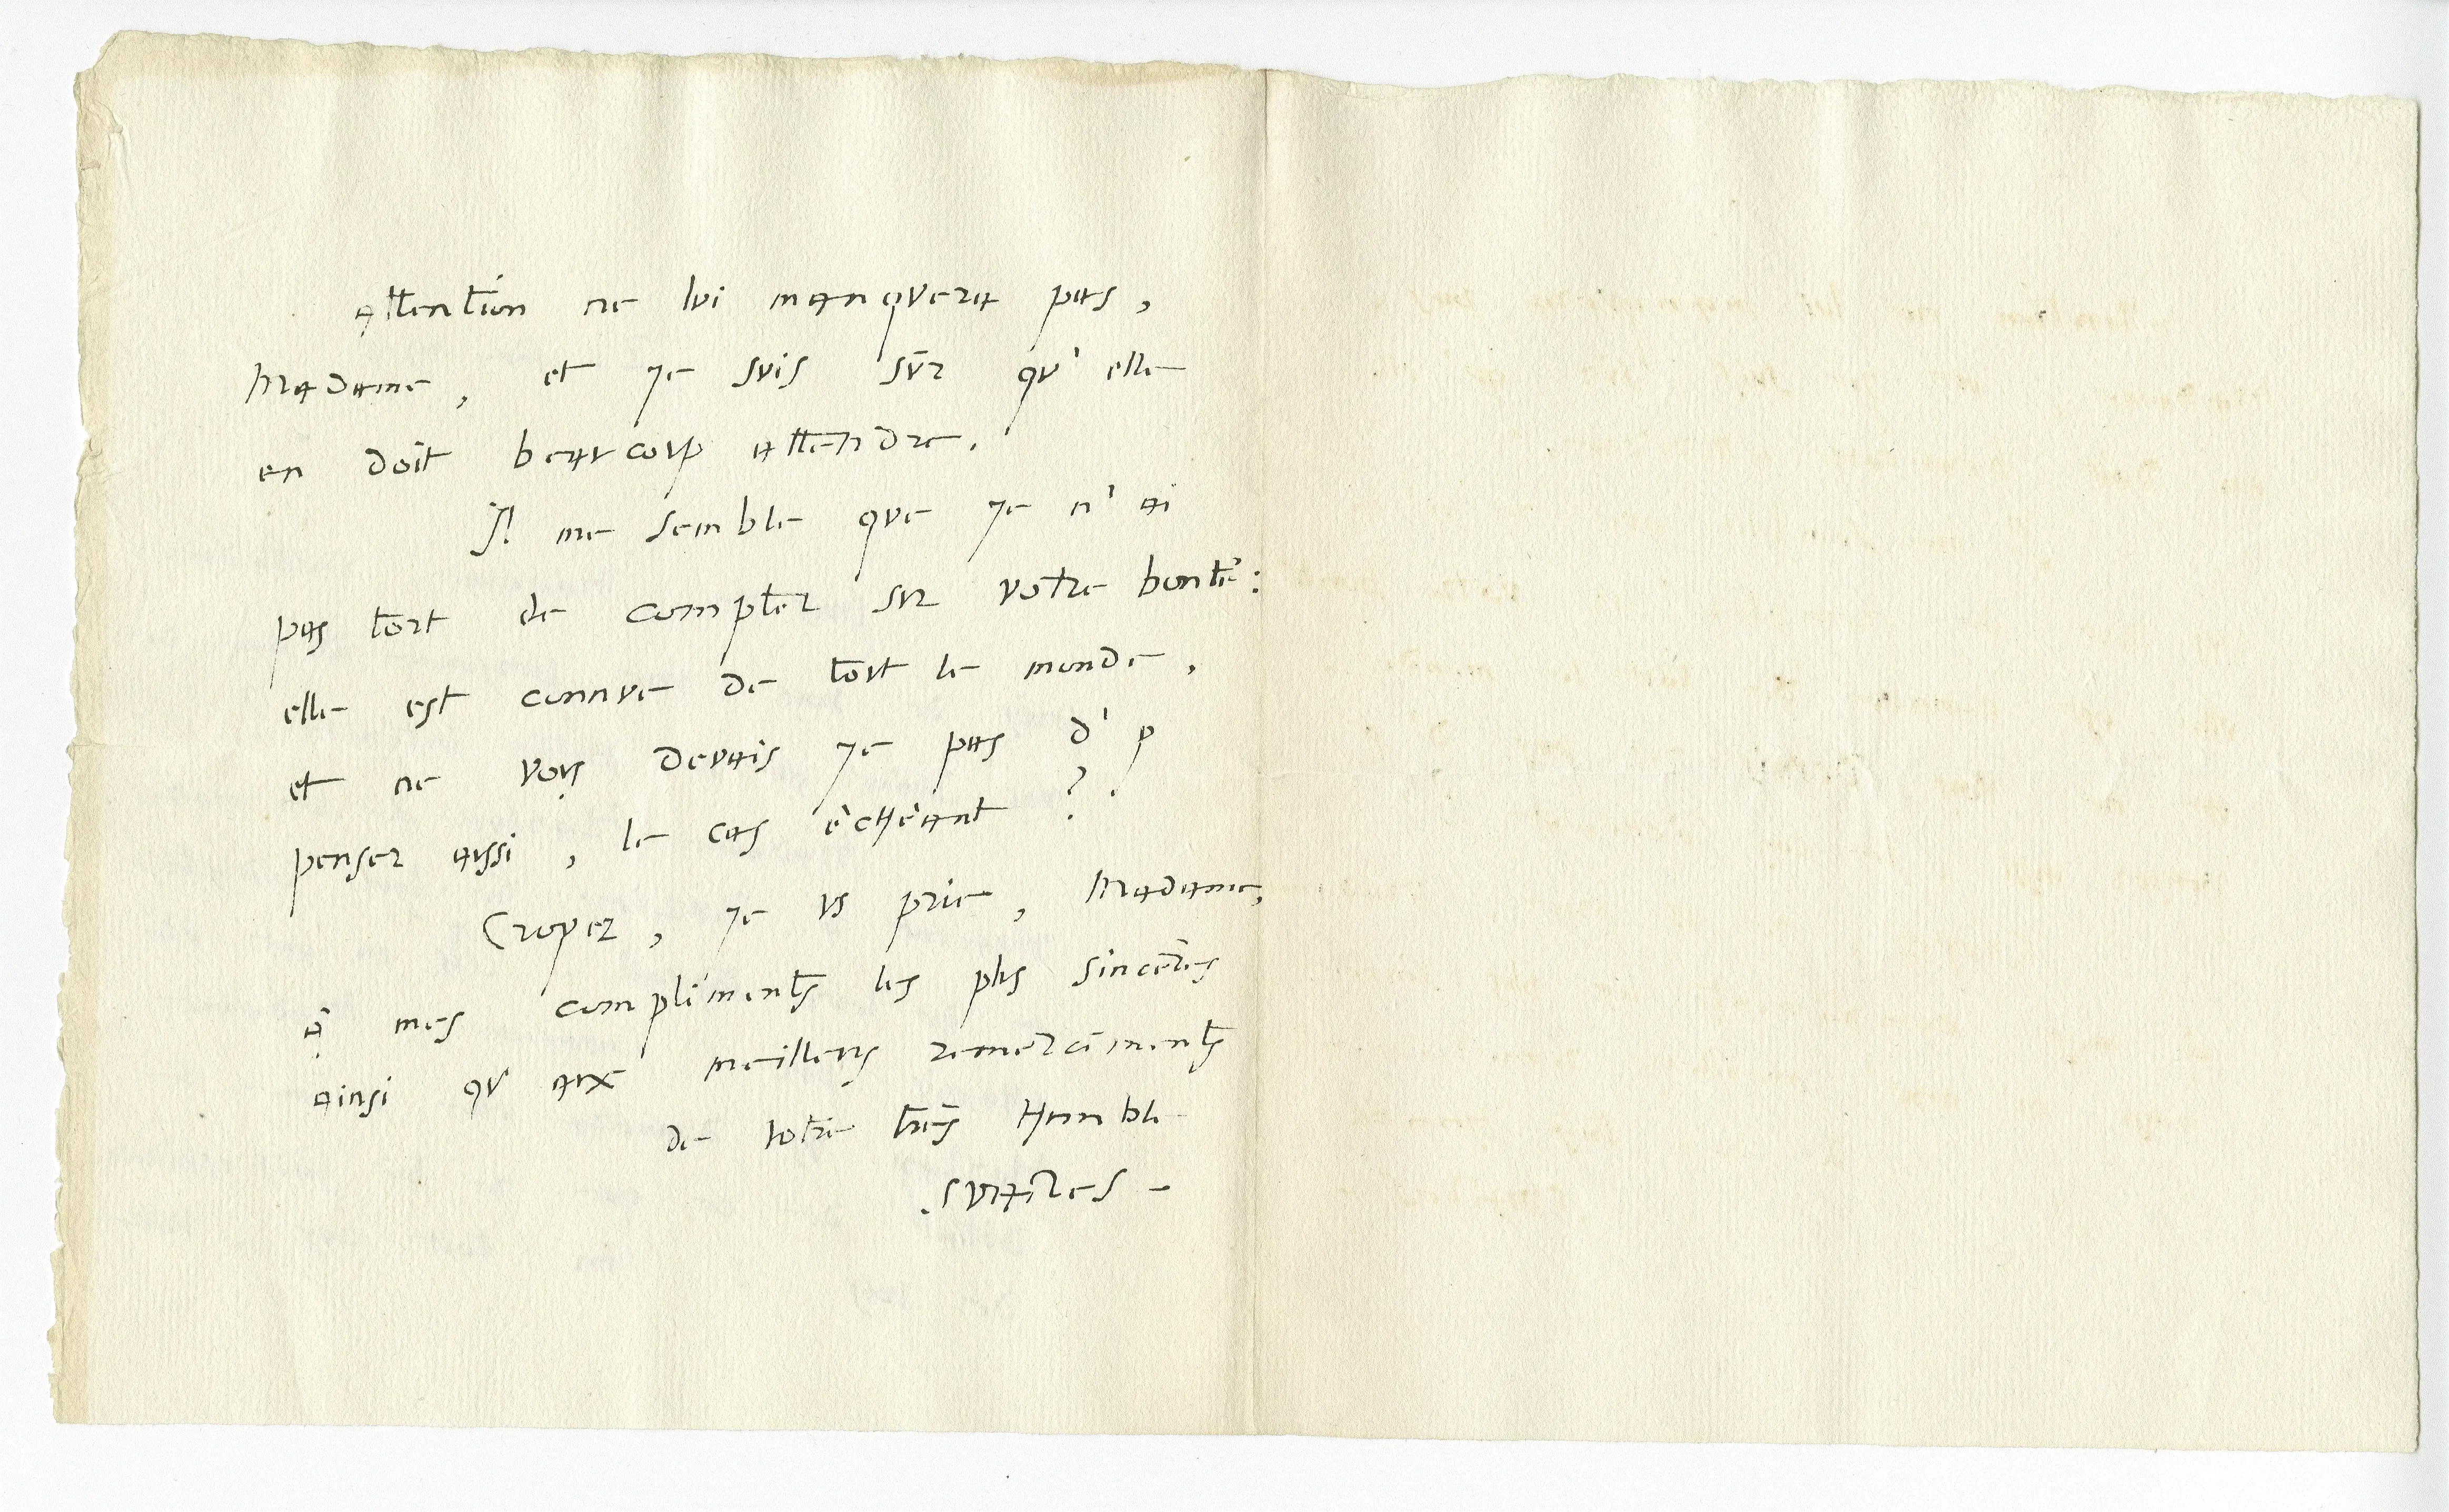 attention ne lui manquera pas,
Madame, et je suis sûr qu'elle
en doit beaucoup attendre.
Il me semble que je n'ai
pas tort de compter sur votre bonté :
elle est connue de tout le monde,
et ne vous devais je pas d'y
penser aussi, le cas échéant ?
Croyez, je vs prie, Madame,
à mes compliments les plus sincères
ainsi qu'aux meilleurs remerciments
de votre très humble